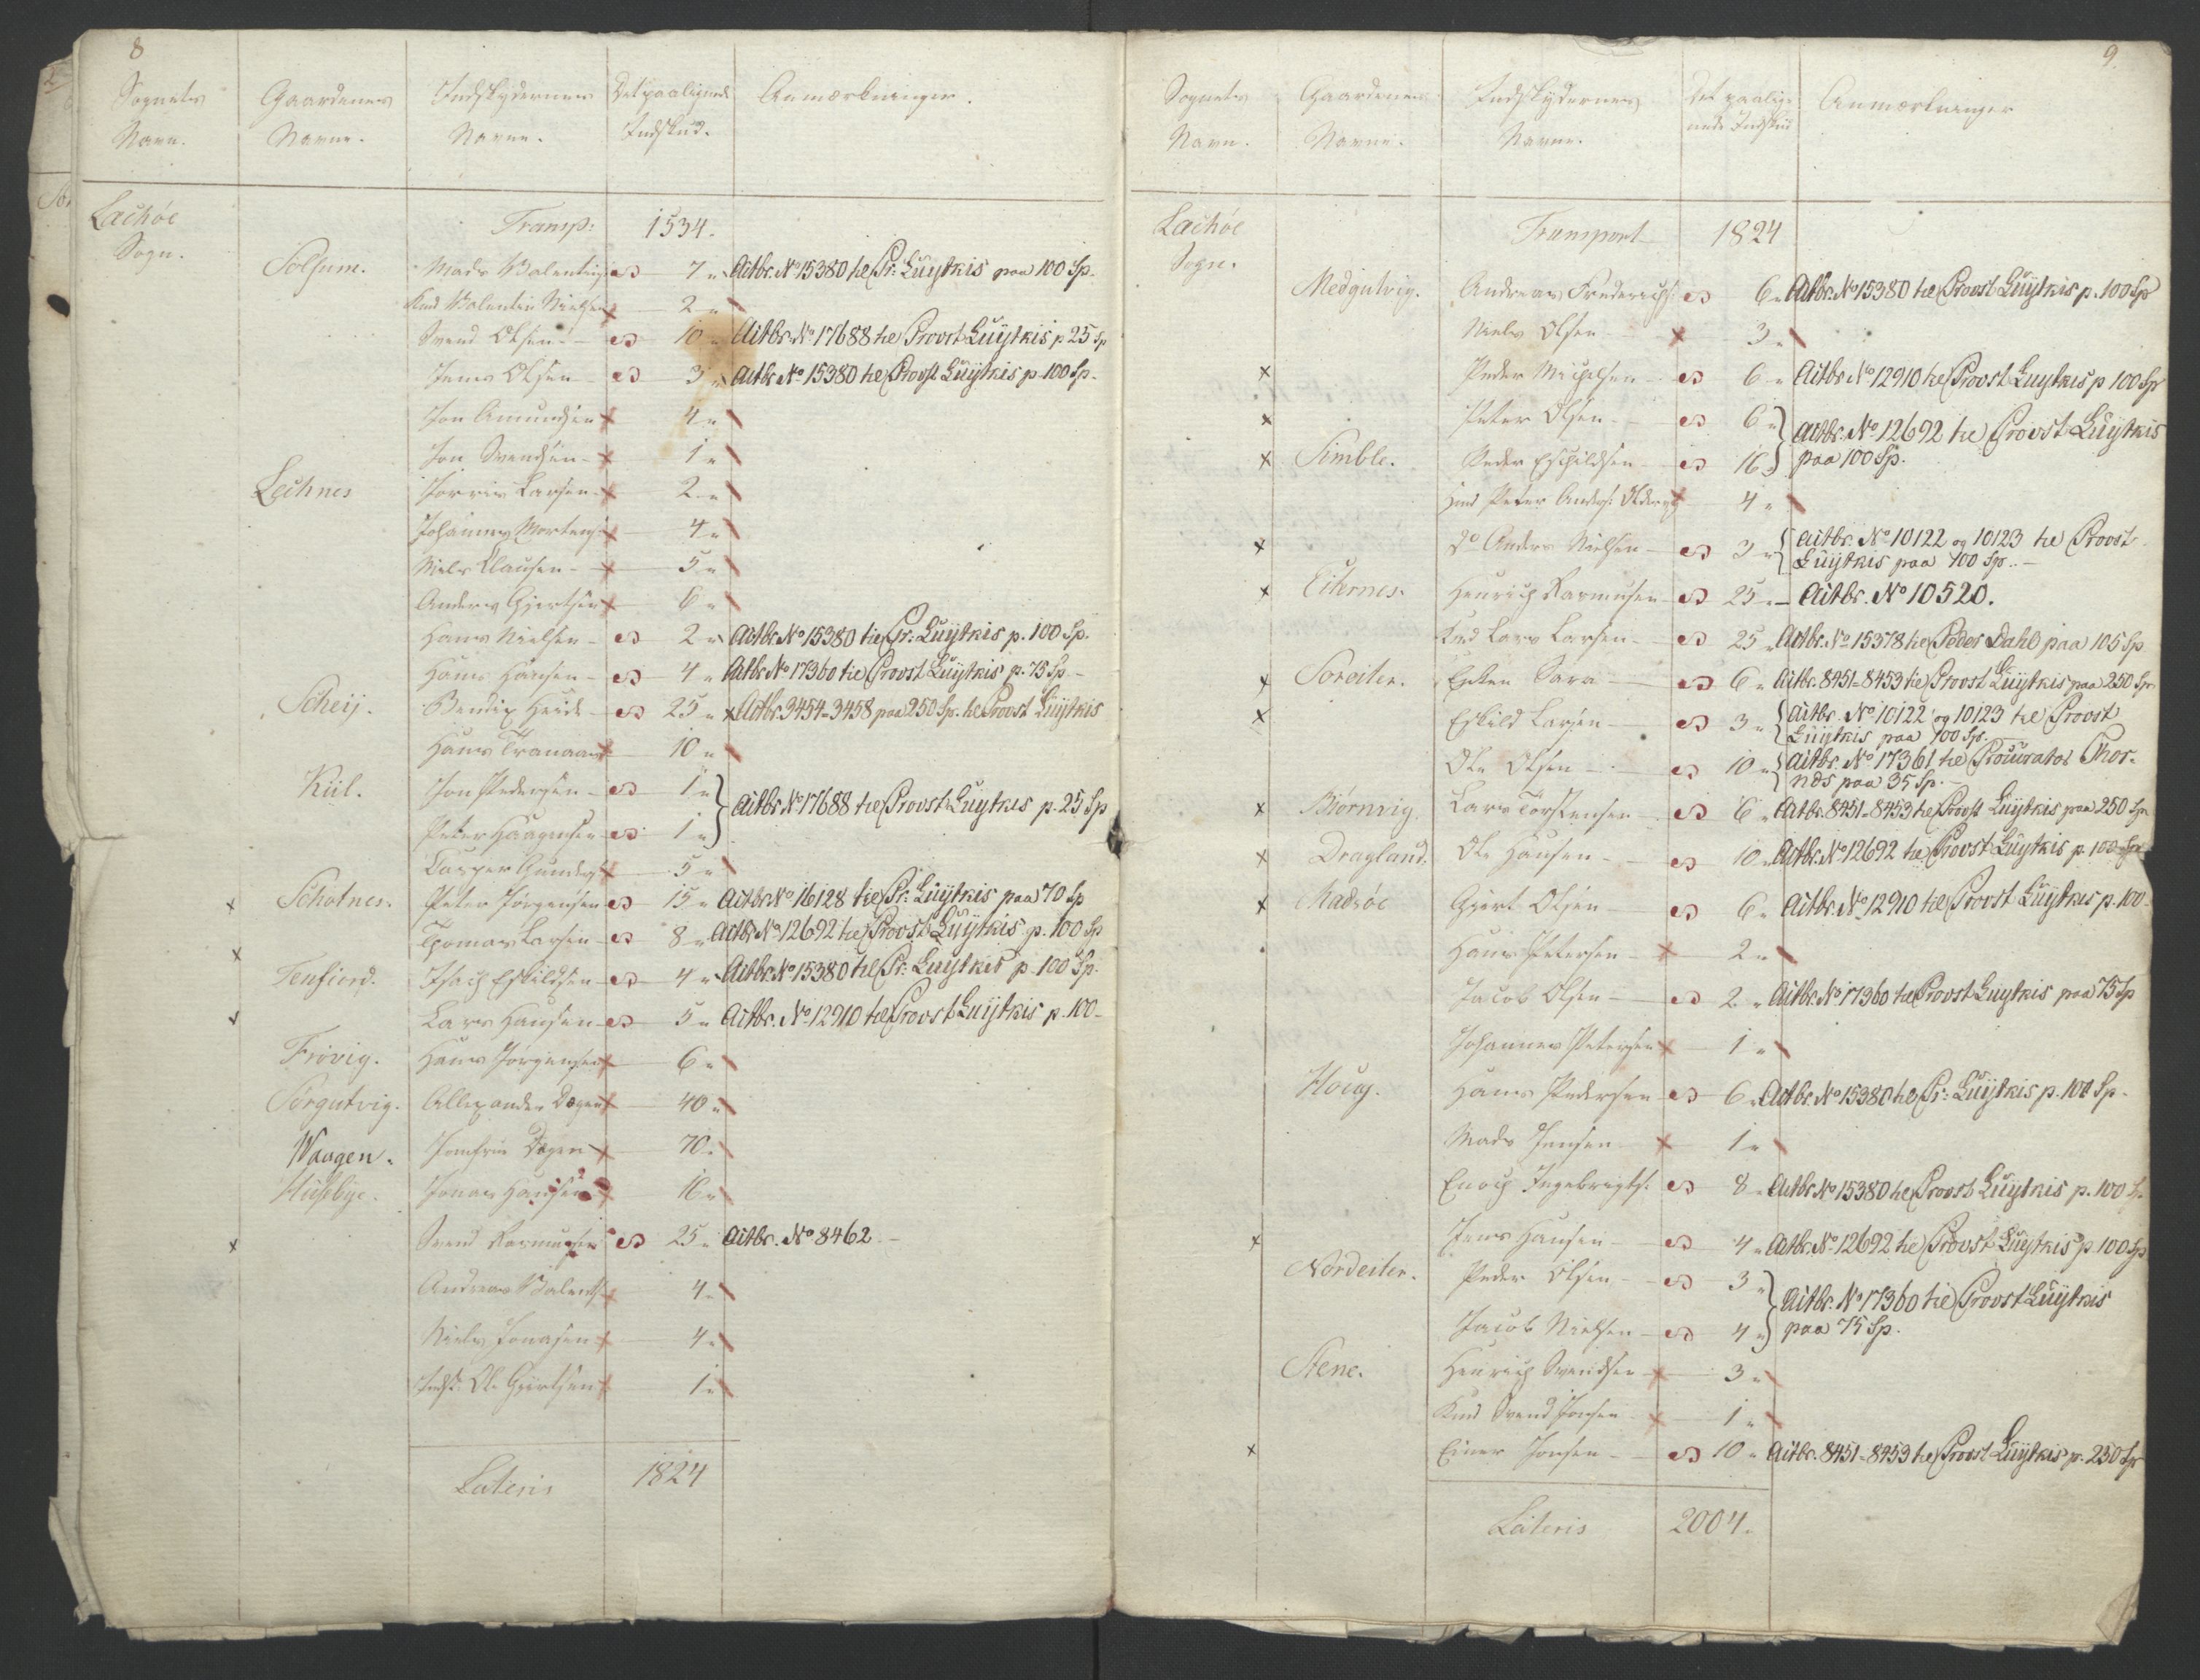 8
Sognets Navn. Gaardenes Navne. Indskydernes Navne. Det paaliggende Indskud. Anmærkninger.
Lachøe Sogn. Transp: 1534.
Solsum. Mads Valentinss 7 " Actbr. No 15380 til Pr: Luÿtkis paa 100 Sp.
Knud Valentin Nielsen 2 "
Svend Olsen 10 " Actbr. No 17688 til Provst Luÿtkis p 25 Sp
Jens Olsen 3 " Actbr No 15380 til Provst Luÿtkis p. 100 Sp.
Jon Amundsen 4 "
Jon Svendsen 1 "
Lechnes Torris Larsen 2 "
Johannes Mortens 4 "
Niels Clausen 5 "
Anders Gjertsen 6 "
Hans Nielsen 2 " Actbr No 15380 til Pr: Luÿtkis p. 100 Sp.
Hans Hansen 4 " Actbr No 17360 til Provst Luÿtkis p. 75 Sp
Scheij. Bendix Heide 25 " Actbr. 3454-3458 paa 250 Sp. til Provst Luÿtkis
Hans Tranaas 10 "
Kiil. Jon Pedersen 1 "
Peter Haagensen 1 " Actbr No 17688 til Provst Luÿtkis p. 25 Sp
Casper Gunders 5 "
x Schotnes. Peter Jørgensen 15 " Actbr No 16128 til Pr: Luÿtkis paa 70 Sp
x Thomas Larsen 8 " Actbr No 12692 til Provst Luÿtkis p. 100 Sp
Tenfiord. Isach Eskildsen 4 " Actbr. No 15380 til Pr: Luÿtkis p. 100 Sp.
Lars Hansen 5 " Actbr. No 12910 til Provst Luÿtkis p. 100
Frøvig. Hans Jørgensen 6 "
Sørgutvig. Allexander Dagen 40 "
Waagen. Jomfru Dagen 70 "
Husbÿe. Jonas Hansen 16 "
x Svend Rasmussen 25 " Actbr. No 8462
Andreas Valents 4 "
Niels Jonasen 4 "
Indst. Ole Gjertsen 1 "
Lateris 1824
9.
Sognets Navn. Gaardenes Navne. Indskydernes Navne. Det paaliggende Indskud Anmærkninger
Lachøe Sogn. Transport 1824
Medgutvig. Andreas Frederichs: 6 " Actbr. No 15380 til Provst Luÿtkis p. 100 Sp
Niels Olsen 3 "
x Peder Michelsen 6 " Actbr No 12910 til Provst Luÿtkis p 100 Sp
x Peter Olsen 6 " Actbr. No 12692 til Provst Luÿtkis
x Simble. Peder Eschildsen 16 paa 100 Sp.
Peter Anders: 4 "
x Do Anders Nielsen 3 " Actbr. No 10122 og 10123 til Provst Luÿtkis paa 100 Sp.
x Eiternes. Henrich Rasmusen 25 " Actbr. No 10520.
Knd Lars Larsen 25 " Actbr. No 15378 til Peder Dahl paa 105 Sp
x Soreiter. Enken Sara 6 " Actbr. 8451-8453 til Provst Luÿtkis paa 250 Sp
x Eskild Larsen 3 " Actbr. No 10122 og 10123 til Provst Luÿtkis paa 100 Sp.
Ole Olsen 10 " Actbr. No 17361 til Procurator Thornds paa 35 Sp.
x Biørnvig. Lars Torstensen 6 " Actbr. 8451-8453 til Provst Luÿtkis paa 250 Sp
x Dragland. Ole Hansen 10 " Actbr. No 12692 til Provst Luÿtkis p. 100 Sp
x Madsøe Gjert Olsen 6 " Actbr. No 12910 til Provst Luÿtkis p. 100
Hans Petersen 2 "
Jacob Olsen 2 " Actbr. No 17360 til Provst Luÿtkis paa 75 Sp
Johannes Petersen 1 "
Houg. Hans Pedersen 6 " Actbr. No 15380 til Pr: Luÿtkis p. 100 Sp.
Mads Jensen 1 "
Enoch Ingebrigts: 8 " Actbr. No 15380 til Provst Luÿtkis p. 100 Sp.
x Jens Hansen 4 " Actbr. No 12692 til Provst Luÿtkis p 100 Sp
Nordeiter. Peder Olsen 3 " Actbr. No 17360 til Provst Luÿtkis
Jacob Nielsen 4 " paa 75 Sp.
Stene. Henrich Svendsen 3 "
Knd Svend Jonsen 1 "
x Einer Jonsen 10 " Actbr. 8451-8453 til Provst Luÿtkis p. 250 Sp
Lateris 2004.